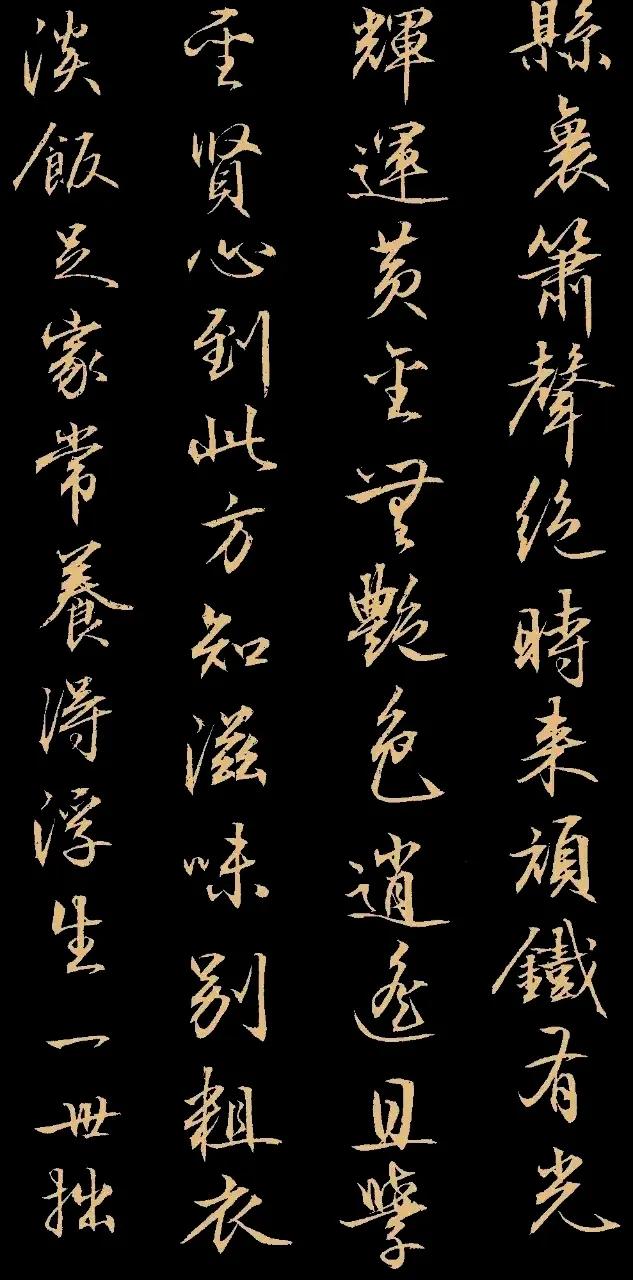 縣裏簫聲絕時來頑鐵有光
輝運黃金無艷色逍遙且學
聖賢心到此方知滋味別粗衣
淡飯足家常養得浮生一世拙